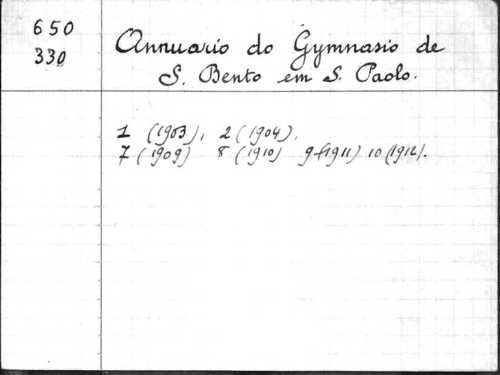 650
330
Annuario do Gymnasio de
S. Bento em S. Paolo.
1 (1903), 2 (1904),
7 (1909) 8 (1910) 9 (1911) 10 (1912).